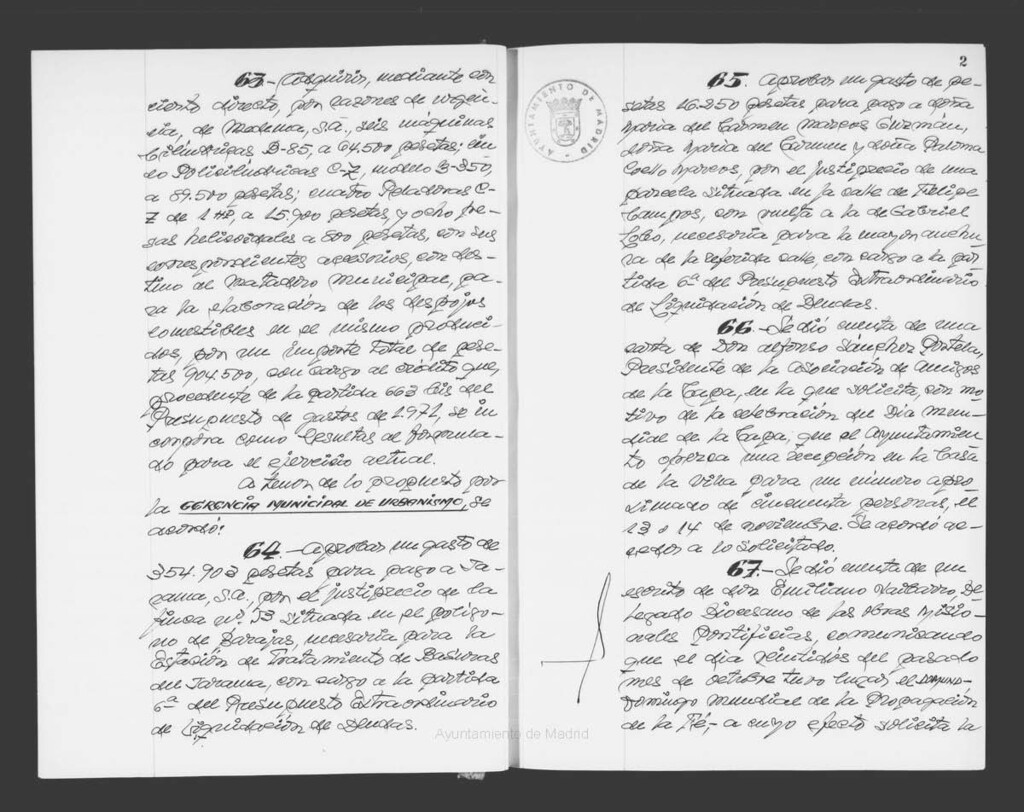 63.- Adquirir, mediante con
cierto directo, por razones de urgen-
cia, de Medema, S.A., seis máquinas
Cilíndricas B-85, a 64.500 pesetas; cin
co Policilíndricas C-7, modelo B-350,
a 89.500 pesetas; cuatro Peladoras C-
7 de 1 HP, a 15.900 pesetas, y ocho fre
sas helicoidales a 500 pesetas, con sus
correspondientes accesorios, con des-
tino al Matadero Municipal, pa-
ra la elaboración de los despojos
comestibles en el mismo produci-
dos, por un importe total de pese-
tas 904.500, con cargo al crédito que,
procedente de la partida 663 bis del
Presupuesto de gastos de 1.971, se in
corpora como Resultas al formula-
do para el ejercicio actual.
A tenor de lo propuesto por
la GERENCIA MUNICIPAL DE URBANISMO, se
acordó:
64.- Aprobar un gasto de
354.903 pesetas para pago a Ja-
rama, S.A., por el justiprecio de la
finca nº. 13 situada en el polígo-
no de Barajas, necesaria para la
Estación de Tratamiento de Basuras
del Jarama, con cargo a la partida
6ª del Presupuesto Extraordinario
de Liquidación de Deudas.
2
AYUNTAMIENTO DE MADRID
65. Aprobar un gasto de pe-
setas 16.250 pesetas para pago a doña
María del Carmen Marcos Guzmán,
doña María del Carmen y doña Paloma
Coello Marcos, por el justiprecio de una
parcela situada en la calle de Felipe
Campos, con vuelta a la de Gabriel
Lobo, necesaria para la mayor anchu
ra de la referida calle, con cargo a la par
tida 6ª del Presupuesto Extraordinario
de Liquidación de Deudas.
66.- Se dió cuenta de una
carta de Don Alfonso Sánchez Portela,
Presidente de la Asociación de Amigos
de la Capa, en la que solicita, con mo
tivo de la celebración del Día Mun-
dial de la Capa, que el Ayuntamien
to ofrezca una recepción en la Casa
de la Villa para un número apro
ximado de cincuenta personas, el
13 o 14 de noviembre. Se acordó ac-
ceder a lo solicitado.
67.- Se dió cuenta de un
escrito de don Emiliano, De
legado Diocesano de las Obras Misio-
nales Pontificias, comunicando
que el día veintidós del pasado
mes de octubre tuvo lugar, el DOMUND-
-Domingo Mundial de la Propagación
de la Fé,- a cuyo efecto solicita la
Ayuntamiento de Madrid